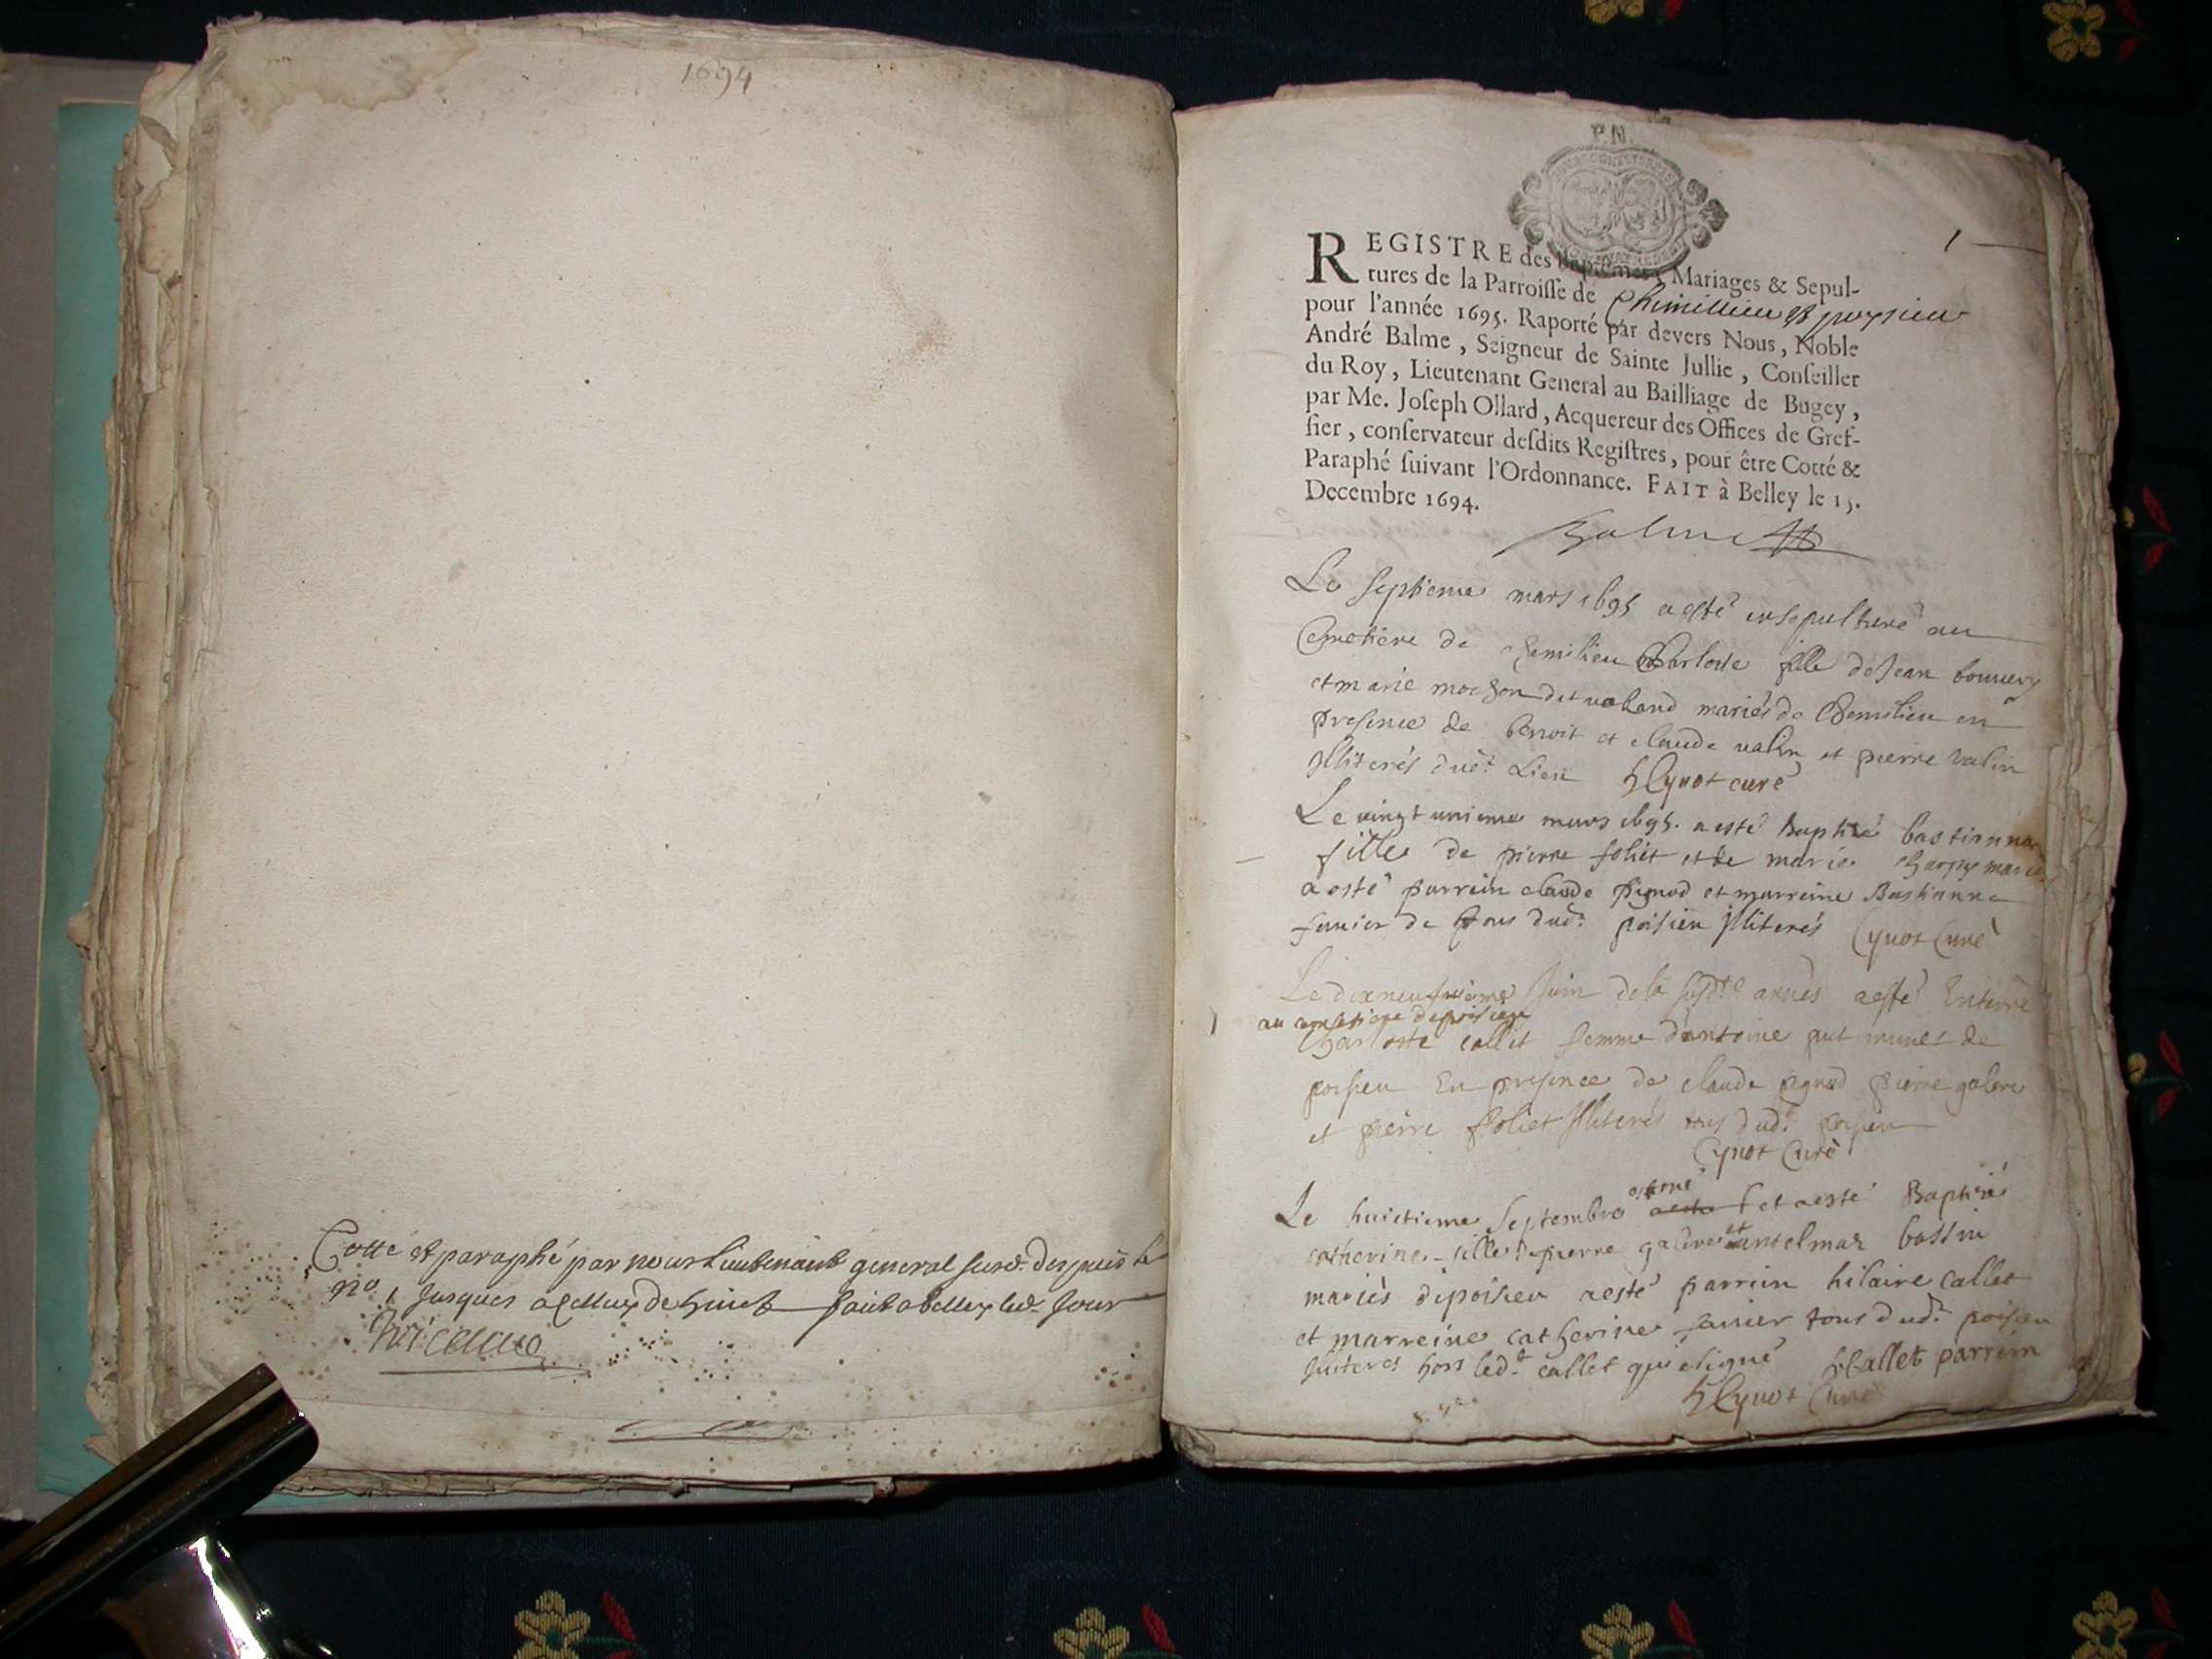 1694
Cotté et paraphé par nous Lieutenant general susd. despuis le
no. 1 Jusques a celluy de huict fait a belley led. Jour
P.N.
1
REGISTRE des Baptemes, Mariages & Sepul-
tures de la Parroisse de Chimillieu et poysieu
pour l'année 1695. Raporté par devers Nous, Noble
André Balme, Seigneur de Sainte Jullie, Conseiller
du Roy, Lieutenant General au Bailliage de Bugey,
par Me. Joseph Ollard, Acquereur des Offices de Gref-
fier, conservateur desdits Registres, pour être Cotté &
Paraphé suivant l'Ordonnance. FAIT à Belley le 15.
Decembre 1694.
Balme
Le septieme mars 1695 a esté ensepulturé au
Cemetiere de Chemilieu Charlote fille de Jean
et marie mochon dit mariés de Chemilieu en
presence de benoit et claude valin et pierre valin
Illiterés dud. Lieu Cynot curé
Le vingt unieme mars 1695. a esté Baptizé bastianne
fille de pierre foliet et de marie mariés
a esté parrein claude pignod et marreine Bastianne
Junier de tous dud. poisieu Illiterés Cynot Curé
Le dixneufvieme Juin de la susdte année a esté Enterré
au cemetiere de poisieu
Charlotte callet femme d'antoine de
poisieu En presence de claude pignod pierre galere
et pierre foliet Illiterés tous dud. poisieu
Cynot Curé
Le huictieme Septembre est né et a esté Baptizé
catherine fille de pierre galere et bassin
mariés de poisieu a esté parrein hilaire callet
et marreine catherine Junier tous dud. poisieu
Illiterés hors led. callet qui a signé H Callet parrein
Cynot Curé